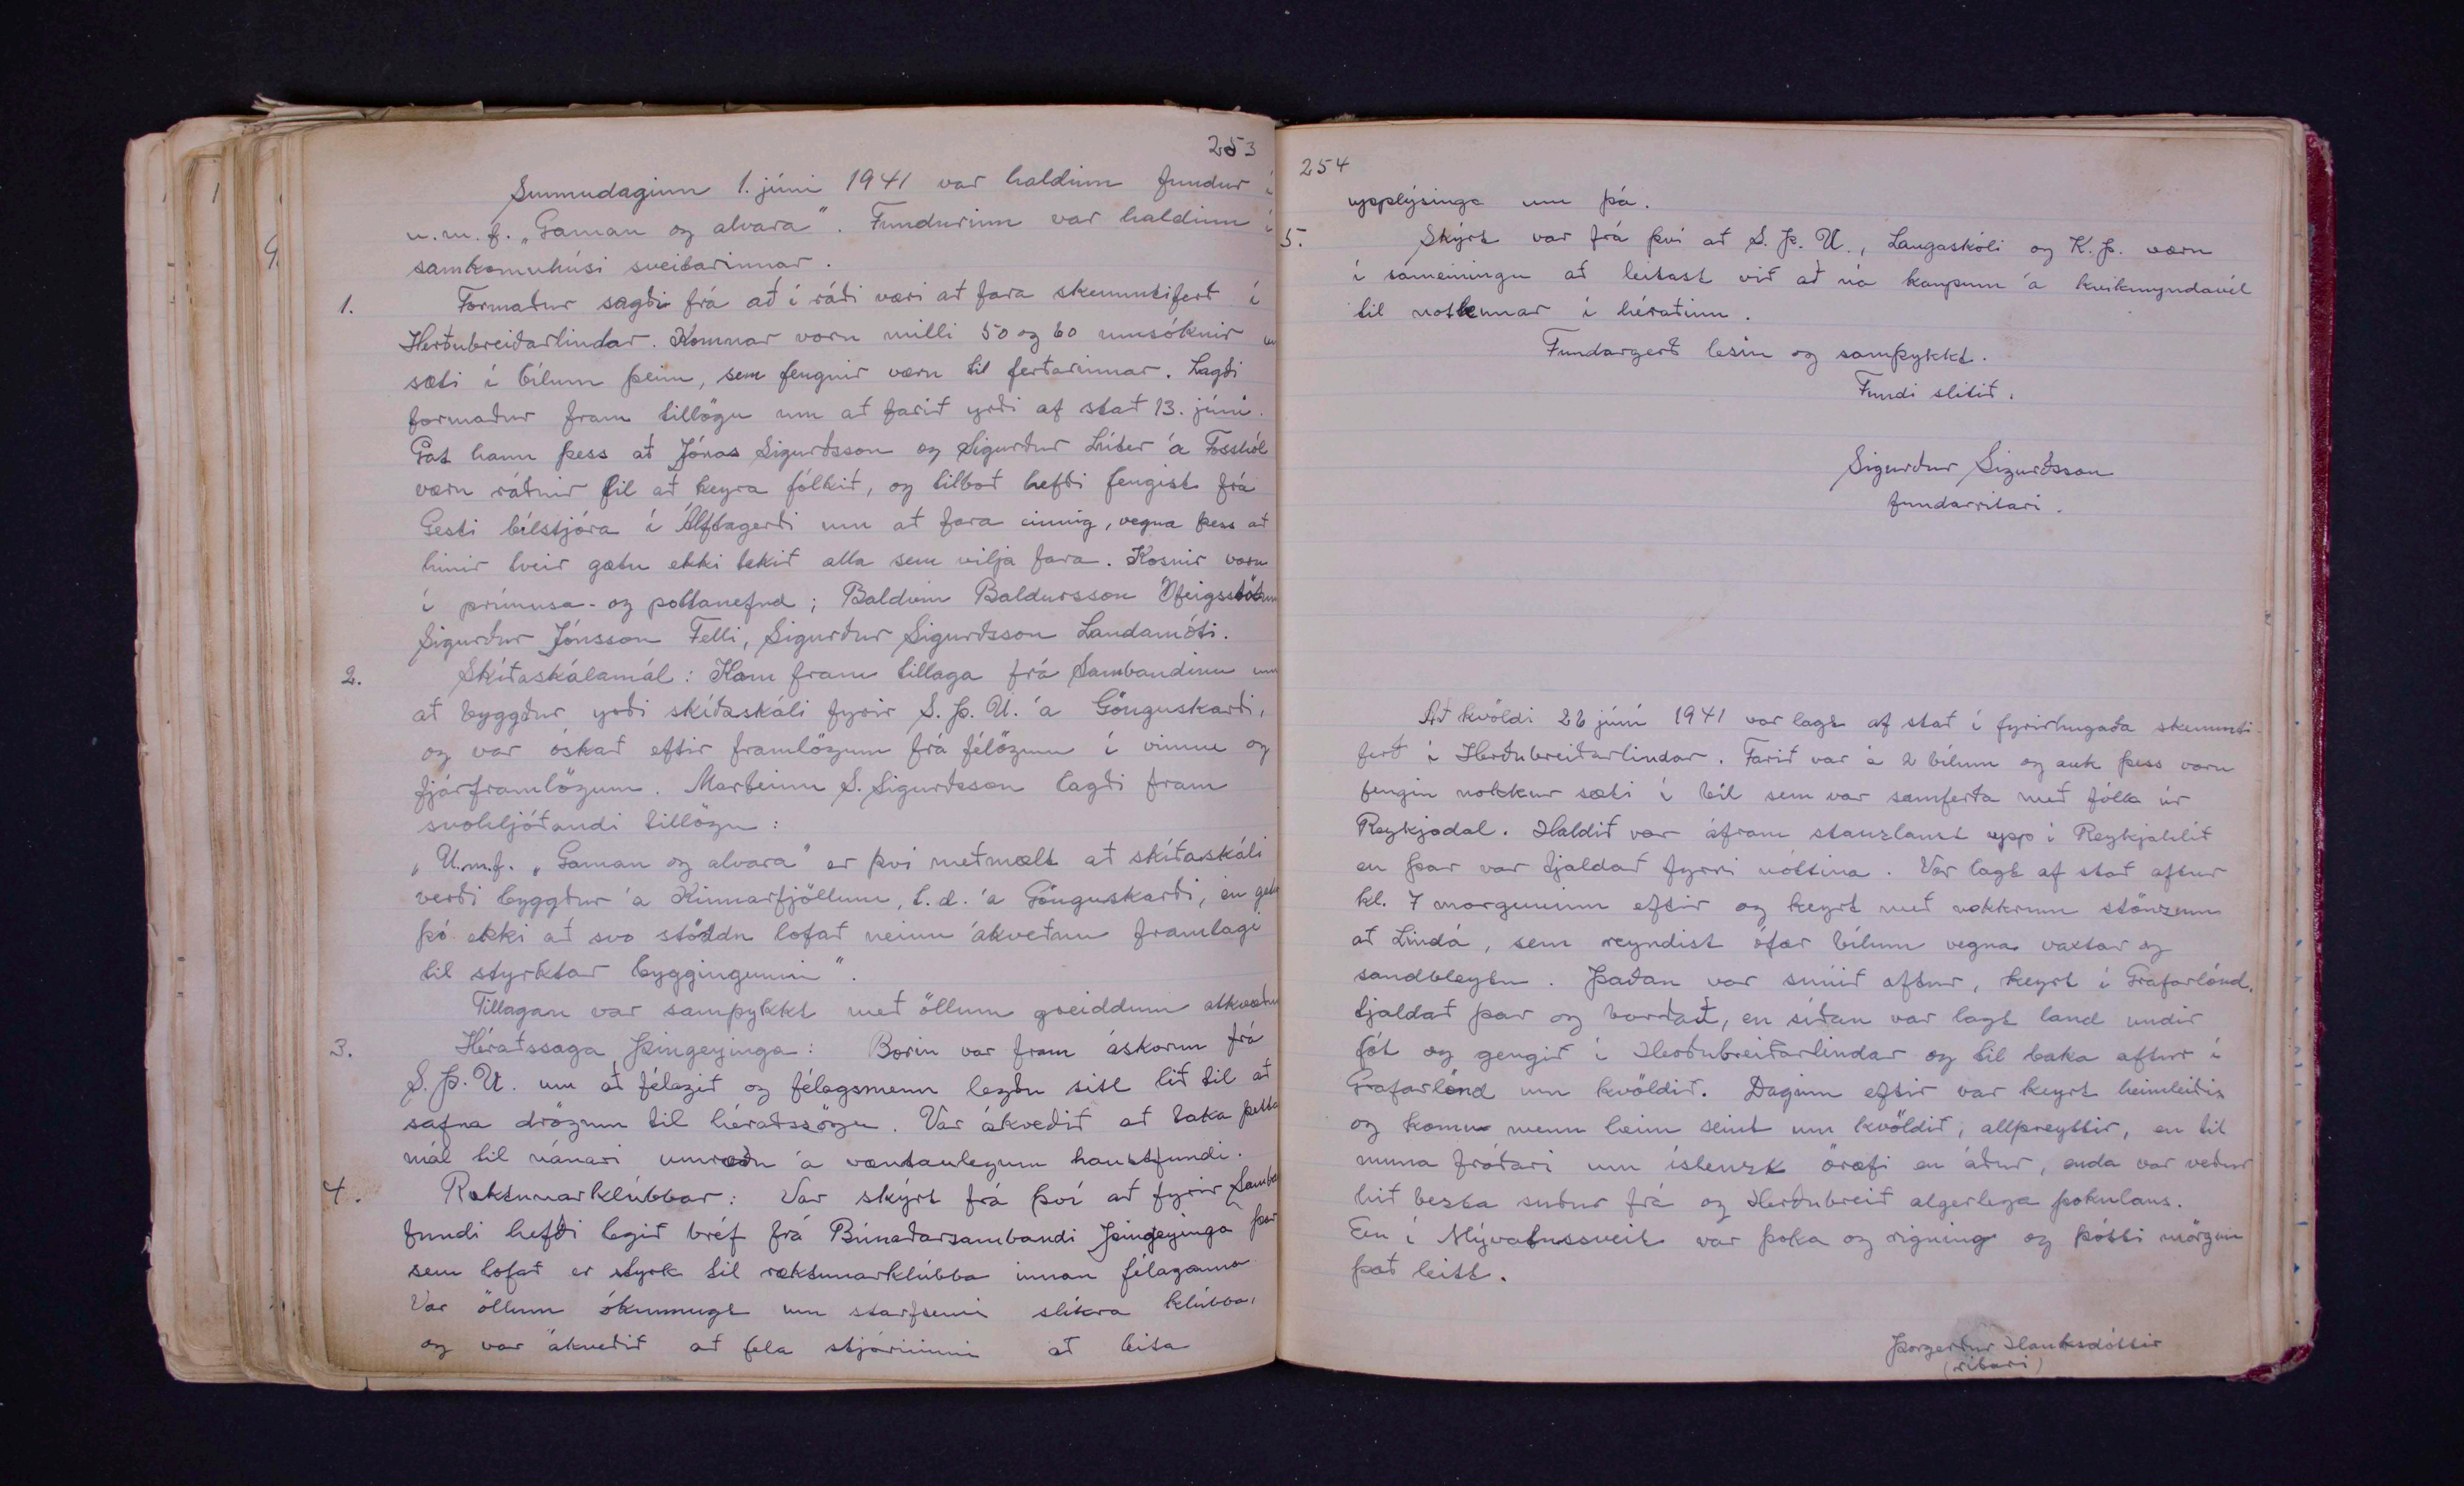 253
Sunnudaginn 1. júní 1941 var haldinn fundur í
u.m.f. „Gaman og alvara". Fundurinn var haldinn í
samkomuhúsi sveitarinnar.
1. Formaður sagði frá að í ráði væri að fara skemmtiferð í
Herðubreiðarlindar. Komnar voru milli 50 og 60 umsóknir um
sæti í bílum þeim, sem fengnir væru til ferðarinnar. Lagði
formaður fram tillögu um að farið yrði af stað 13. júní.
Gat hann þess að Jónas Sigurðsson og Sigurður Lúter á Fosshól
væru ráðnir til að keyra fólkið, og tilboð hefði fengist frá
Gesti bílstjóra í Álftagerði um að fara einnig, vegna þess að
hinir tveir gætu ekki tekið alla sem vilja fara. Kosnir voru
í prímusa- og pottanefnd; Baldvin Baldursson Ófeigsstöðum
Sigurður Jónsson Felli, Sigurður Sigurðsson Landamóti.
2. Skíðaskálamál: Kom fram tillaga frá Sambandinu um
að byggður yrði skíðaskáli fyrir S.Þ.U. á Gönguskarði,
og var óskað eftir framlögum frá félögum í vinnu og
fjárframlögum. Marteinn S. Sigurðsson lagði fram
svohljóðandi tillögu:
„U.m.f. „Gaman og alvara" er því meðmælt að skíðaskáli
verði byggður á Kinnarfjöllum, t.d. á Gönguskarði, en getur
þó ekki að svo stöddu lofað neinu ákveðnu framlagi
til styrktar byggingunni".
Tillagan var samþykkt með öllum greiddum atkvæðum
3. Héraðssaga Þingeyinga: Borin var fram áskorun frá
S.Þ.U. um að félagið og félagsmenn legðu sitt lið til að
safna drögum til héraðssögu. Var ákveðið að taka þetta
mál til nánari umræðu á væntanlegum haustfundi.
4. Ræktunarklúbbar: Var skýrt frá því að fyrir Samb
fundi hefði legið bréf frá Búnaðarsambandi Þingeyinga þar
sem lofað er styrk til ræktunarklúbba innan félaganna
Var öllum ókunnugt um starfsemi slíkra klúbba,
og var ákveðið að fela stjórninni að leita
254
upplýsinga um þá.
5. Skýrt var frá því að S.Þ.U., Laugaskóli og K.Þ. væru
í sameiningu að leitast við að ná kaupum á kvikmyndavél
til notkunar í héraðinu.
Fundargerð lesin og samþykkt.
Fundi slitið.
Sigurður Sigurðsson
fundarritari.
Að kvöldi 22 júní 1941 var lagt af stað í fyrirhugaða skemmti-
ferð í Herðubreiðarlindar. Farið var á 2 bílum og auk þess voru
fengin nokkur sæti í bíl sem var samferða með fólk úr
Reykjadal. Haldið var áfram stanzlaust upp í Reykjahlíð
en þar var tjaldað fyrri nóttina. Var lagt af stað aftur
kl. 7 morguninn eftir og keyrt með nokkrum stönzum
að Lindá, sem reyndist ófær bílum vegna vaxtar og
sandbleytu. Þaðan var snúið aftur, keyrt í Grafarlönd,
tjaldað þar og borðað, en síðan var lagt land undir
fót og gengið í Herðubreiðarlindar og til baka aftur í
Grafarlönd um kvöldið. Daginn eftir var keyrt heimleiðis
og komu menn heim seint um kvöldið, allþreyttir, en til
muna fróðari um íslenzk öræfi en áður, enda var veður
hið bezta suður frá og Herðubreið algerlega þokulaus.
En í Mývatnssveit var þoka og rigning og þótti mörgum
það leitt.
Þorgerður Hauksdóttir
(ritari)